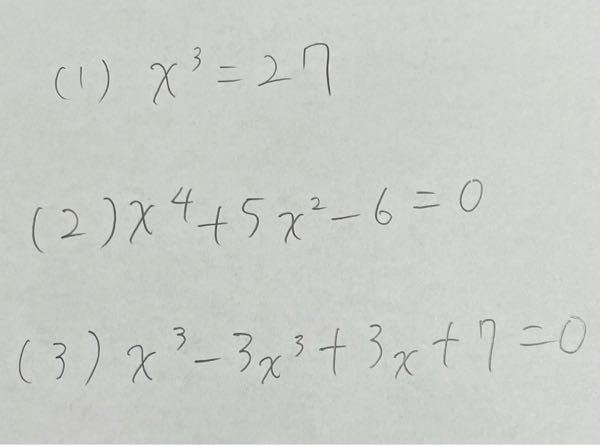 (1) x³ = 27
(2) x⁴ + 5x² - 6 = 0
(3) x³ - 3x³ + 3x + 7 = 0